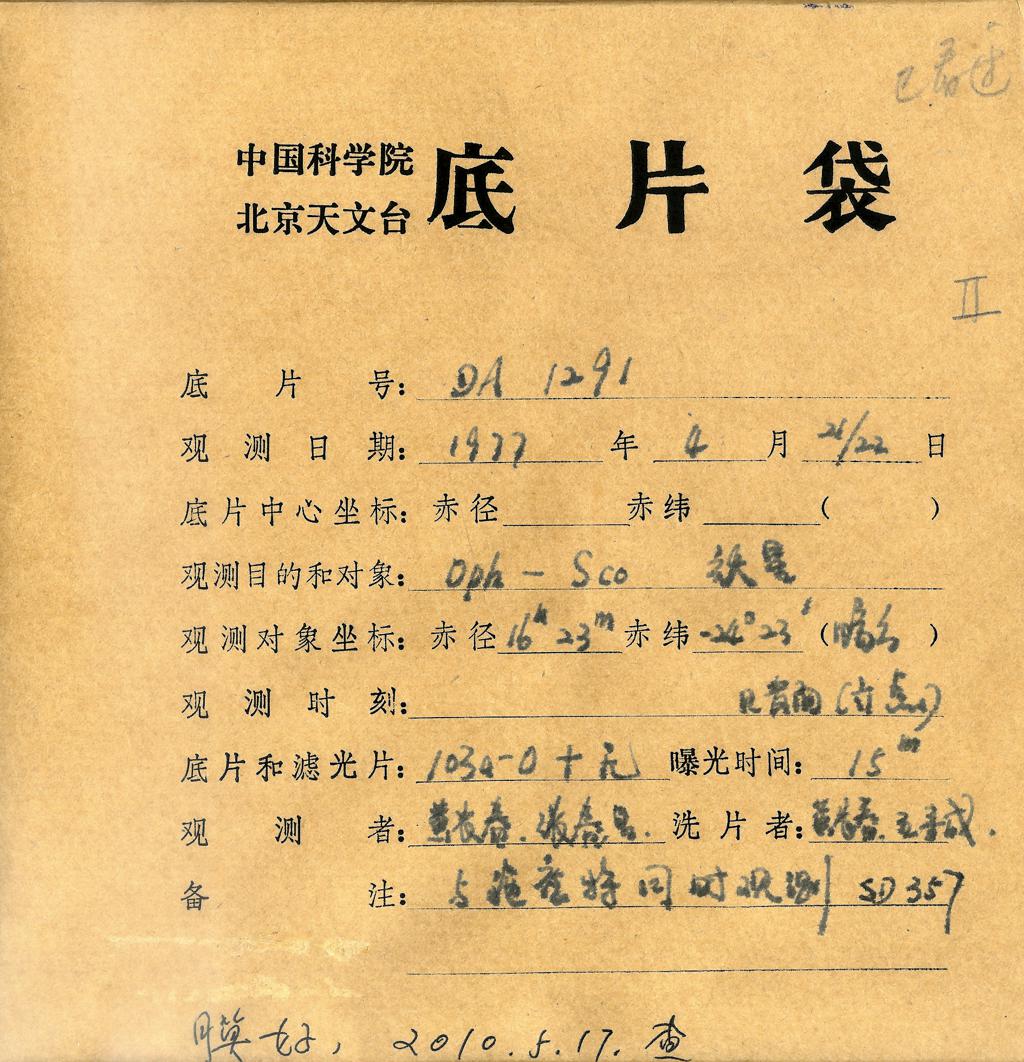 已看过
中国科学院
北京天文台
底片袋
II
底片号: DA 1291
观测日期: 1977 年 4 月 21/22 日
底片中心坐标: 赤径 赤纬 ( )
观测目的和对象: Oph - Sco 妖星
观测对象坐标: 赤径 16h 23m 赤纬 -24°23′ ( )
观测时刻:
底片和滤光片: 103a-O + 无 曝光时间: 15m
观测者: 黄长春. 洗片者: 黄长春.
备注: 与施密特同时观测 SD 357
膜好, 2010.5.17. 查